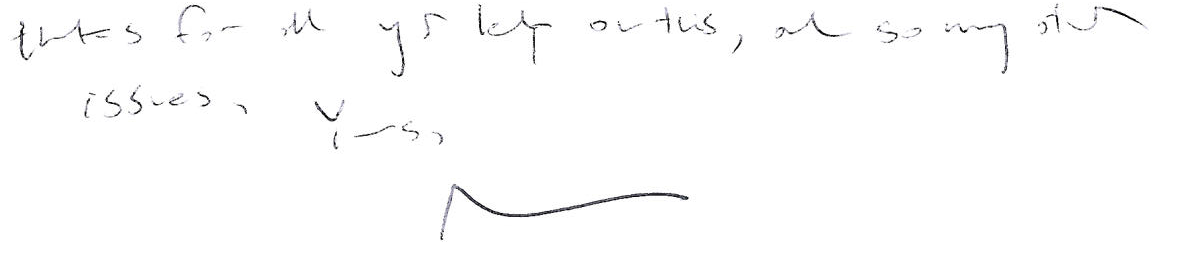 thanks for all your help on this, and so many other
issues. Yours,